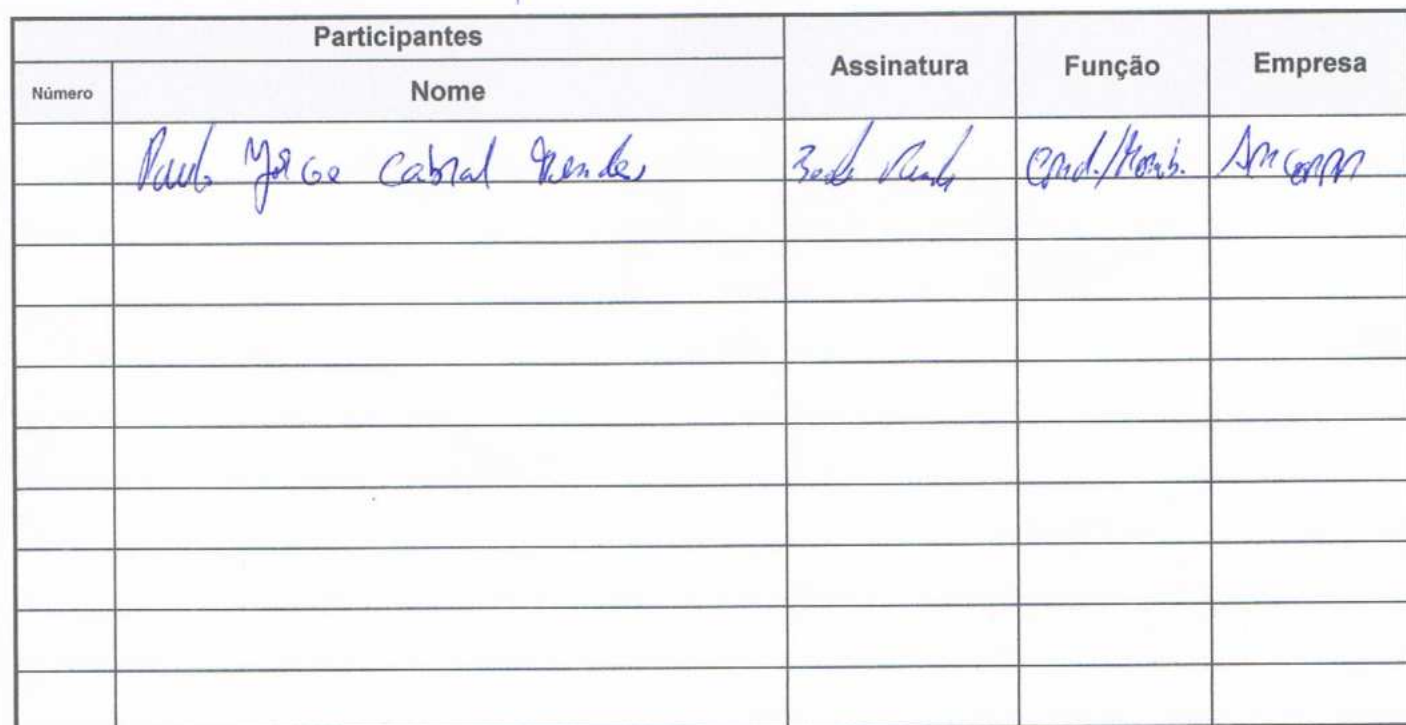 Participantes Assinatura Função Empresa
Número Nome
Paulo Jorge Cabral Mendes